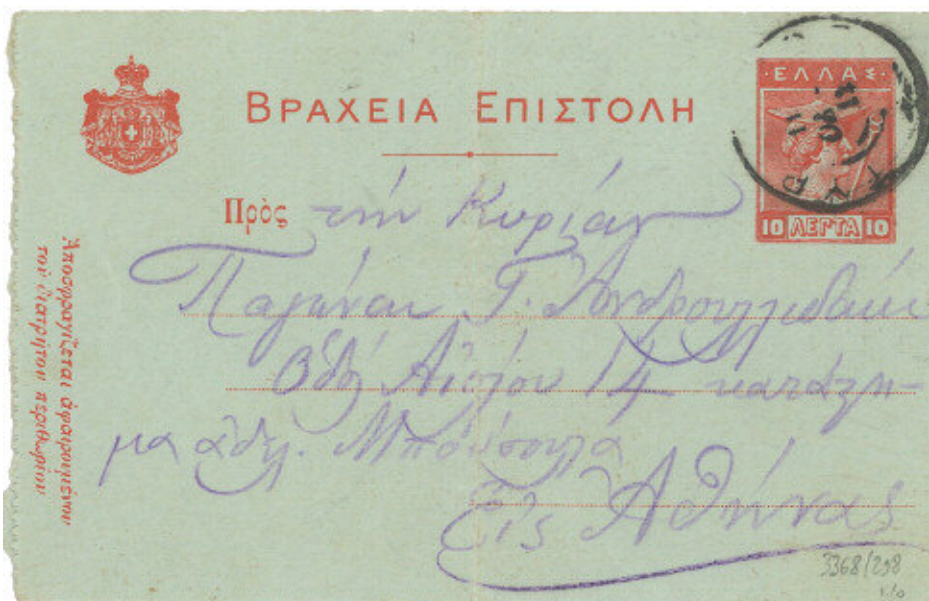 ΒΡΑΧΕΙΑ ΕΠΙΣΤΟΛΗ
·ΕΛΛΑΣ·
10 ΛΕΠΤΑ 10
Πρὸς τὴν Κυρίαν
Γ.
Ὁδὸς Αἰόλου 14 κατάστη-
μα ἀδελ.
Εἰς Ἀθήνας
Ἀποσφραγίζεται ἀφαιρουμένου
τοῦ διατρήτου περιθωρίου
3368/298